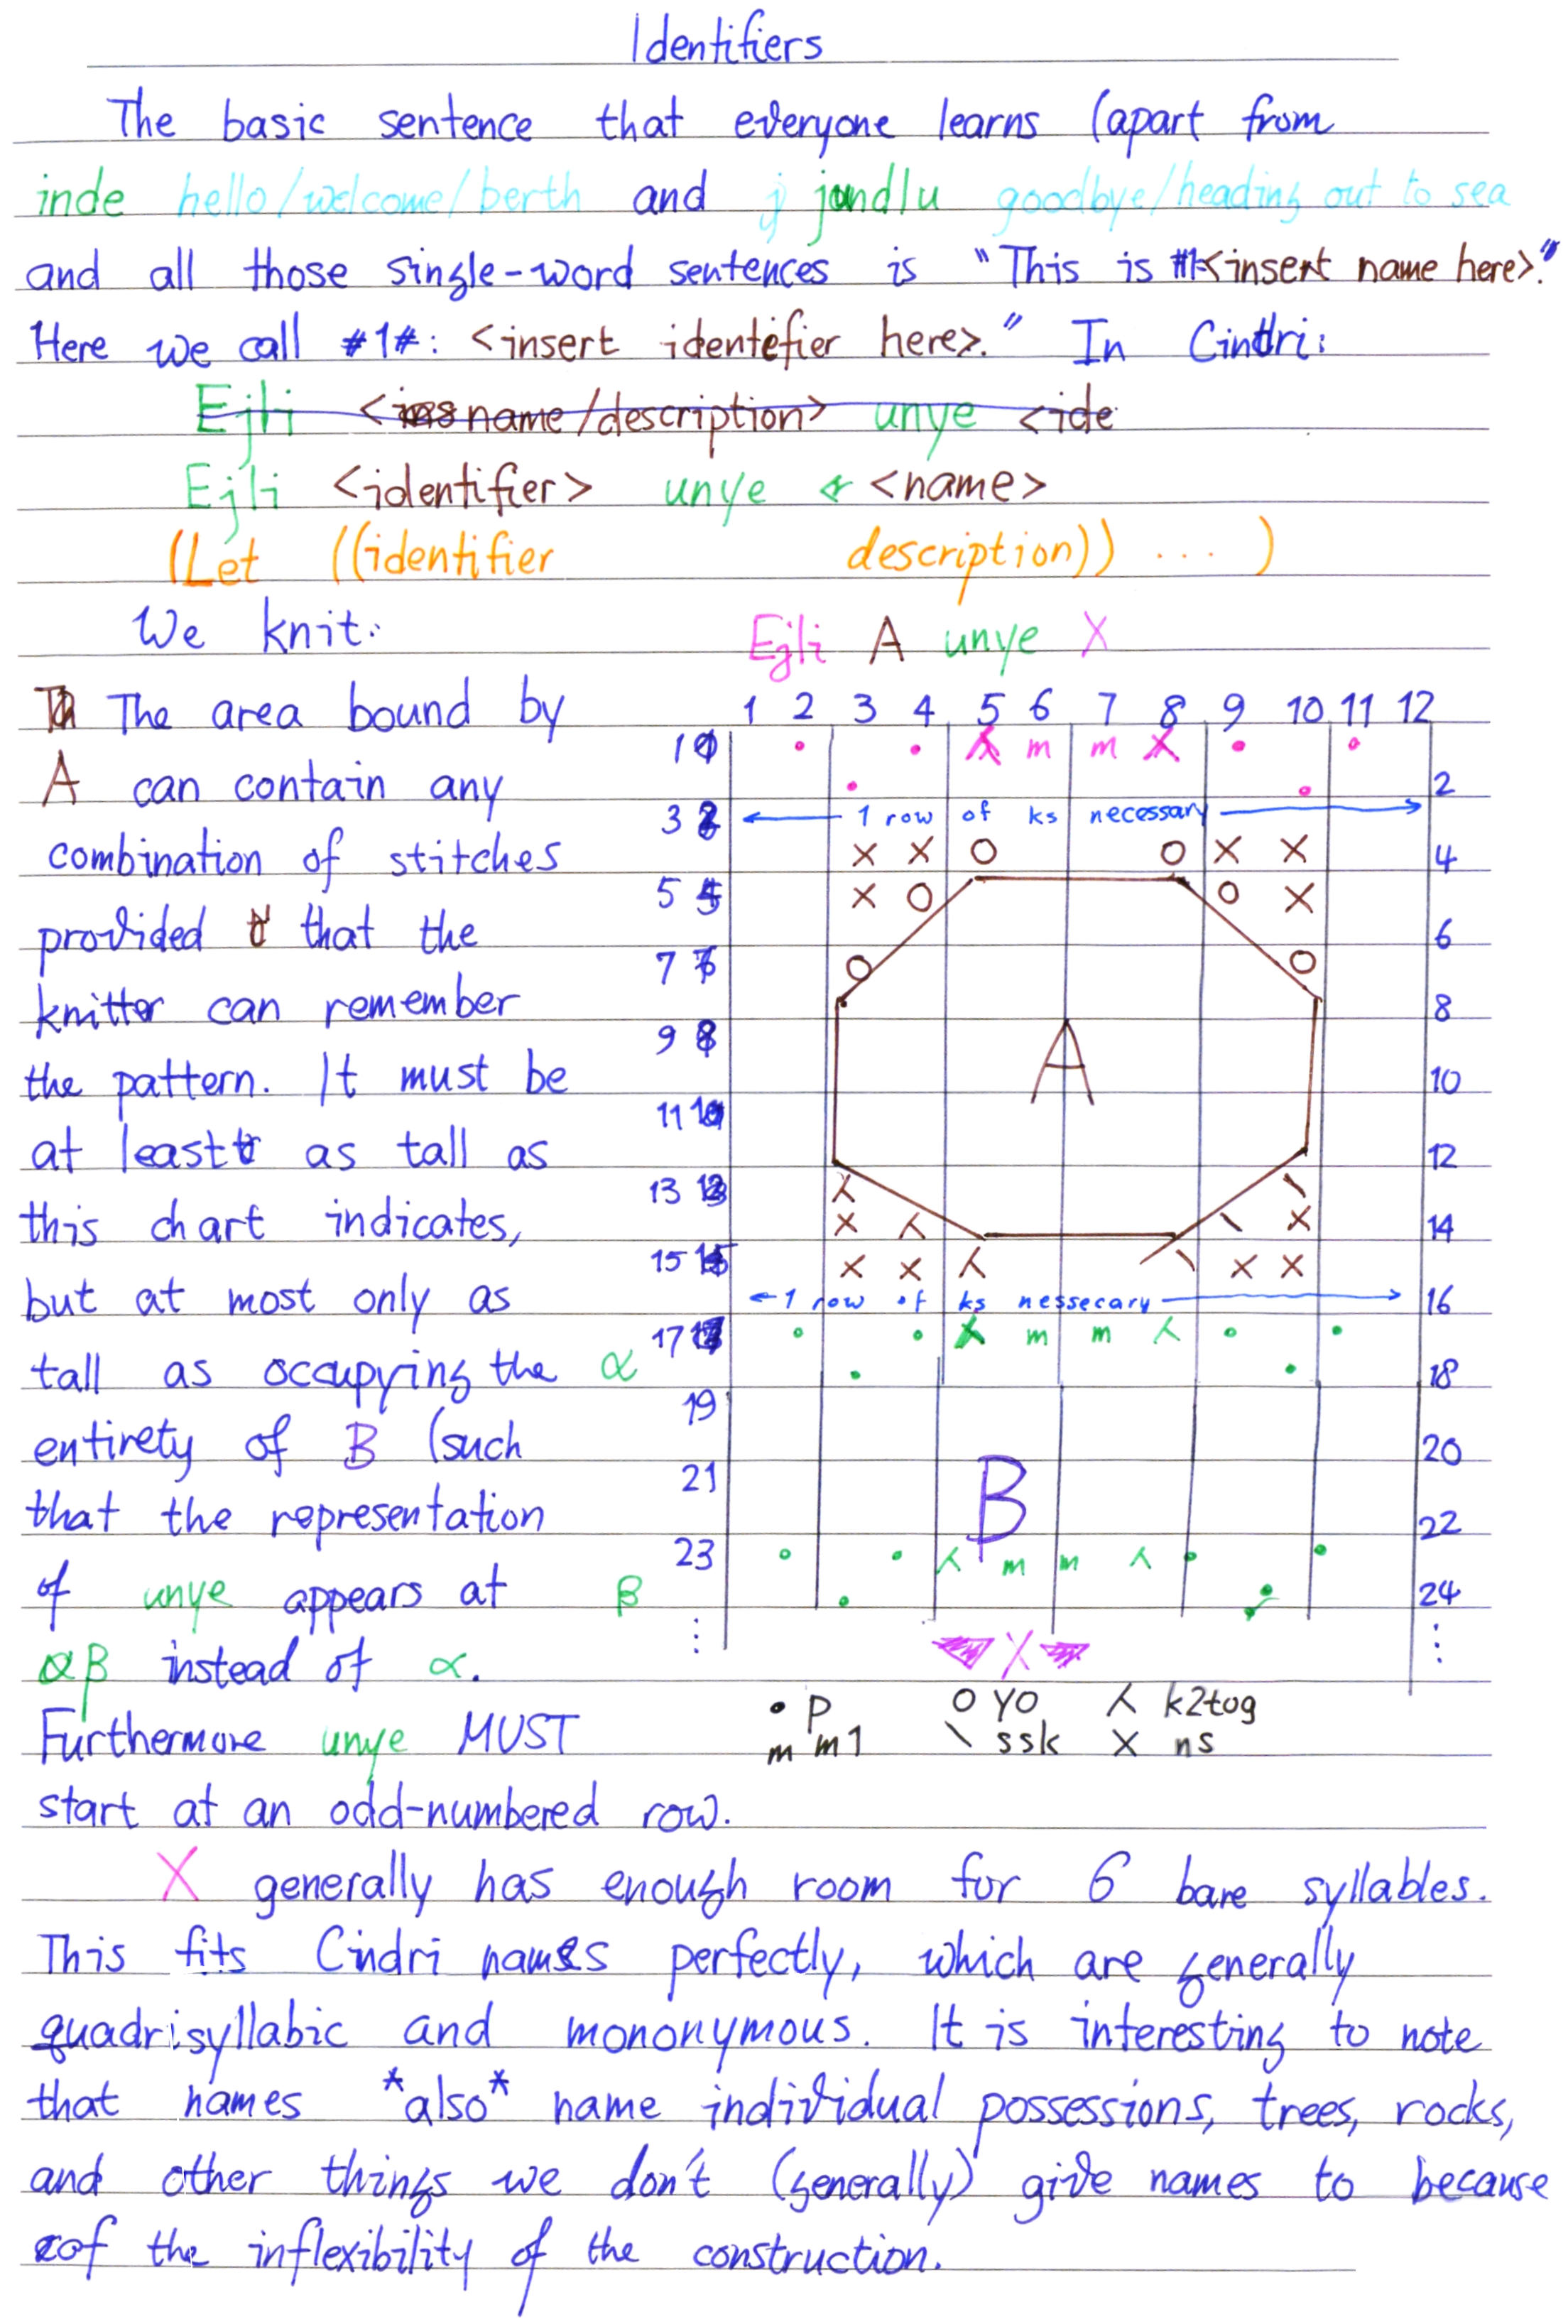 Identifiers
The basic sentence that everyone learns (apart from
inde hello/welcome/berth and j jundlu goodbye/heading out to sea
and all those single-word sentences is "This is #1<insert name here>."
Here we call #1#: <insert identifier here>." In Cindri:
Ejli <ins name/description> unye <ide
Ejli <identifier> unye <name>
(Let ((identifier description)) ... )
We knit: Ejli A unye X
The area bound by
A can contain any
combination of stitches
provided that the
knitter can remember
the pattern. It must be
at least as tall as
this chart indicates,
but at most only as
tall as occupying the
entirety of B (such
that the representation
of unye appears at
αβ instead of α.
Furthermore unye MUST
start at an odd-numbered row.
1 2 3 4 5 6 7 8 9 10 11 12
1 • • ⅄ m m ⅄ • •
• • 2
3 ← 1 row of ks necessary →
X X O O X X 4
5 X O O X
6
7 O O
8
9 A
10
11
12
13 ⅄ \
X ⅄ \ X 14
15 X X ⅄ \ X X
← 1 row of ks nessecary → 16
17 • • ⅄ m m ⅄ • •
α • • 18
19
20
21 B
22
23 • • ⅄ m m ⅄ • •
β • • 24
⋮ X ⋮
• p O YO ⅄ k2tog
m m1 \ ssk X ns
X generally has enough room for 6 bare syllables.
This fits Cindri names perfectly, which are generally
quadrisyllabic and mononymous. It is interesting to note
that names *also* name individual possessions, trees, rocks,
and other things we don't (generally) give names to because
of the inflexibility of the construction.